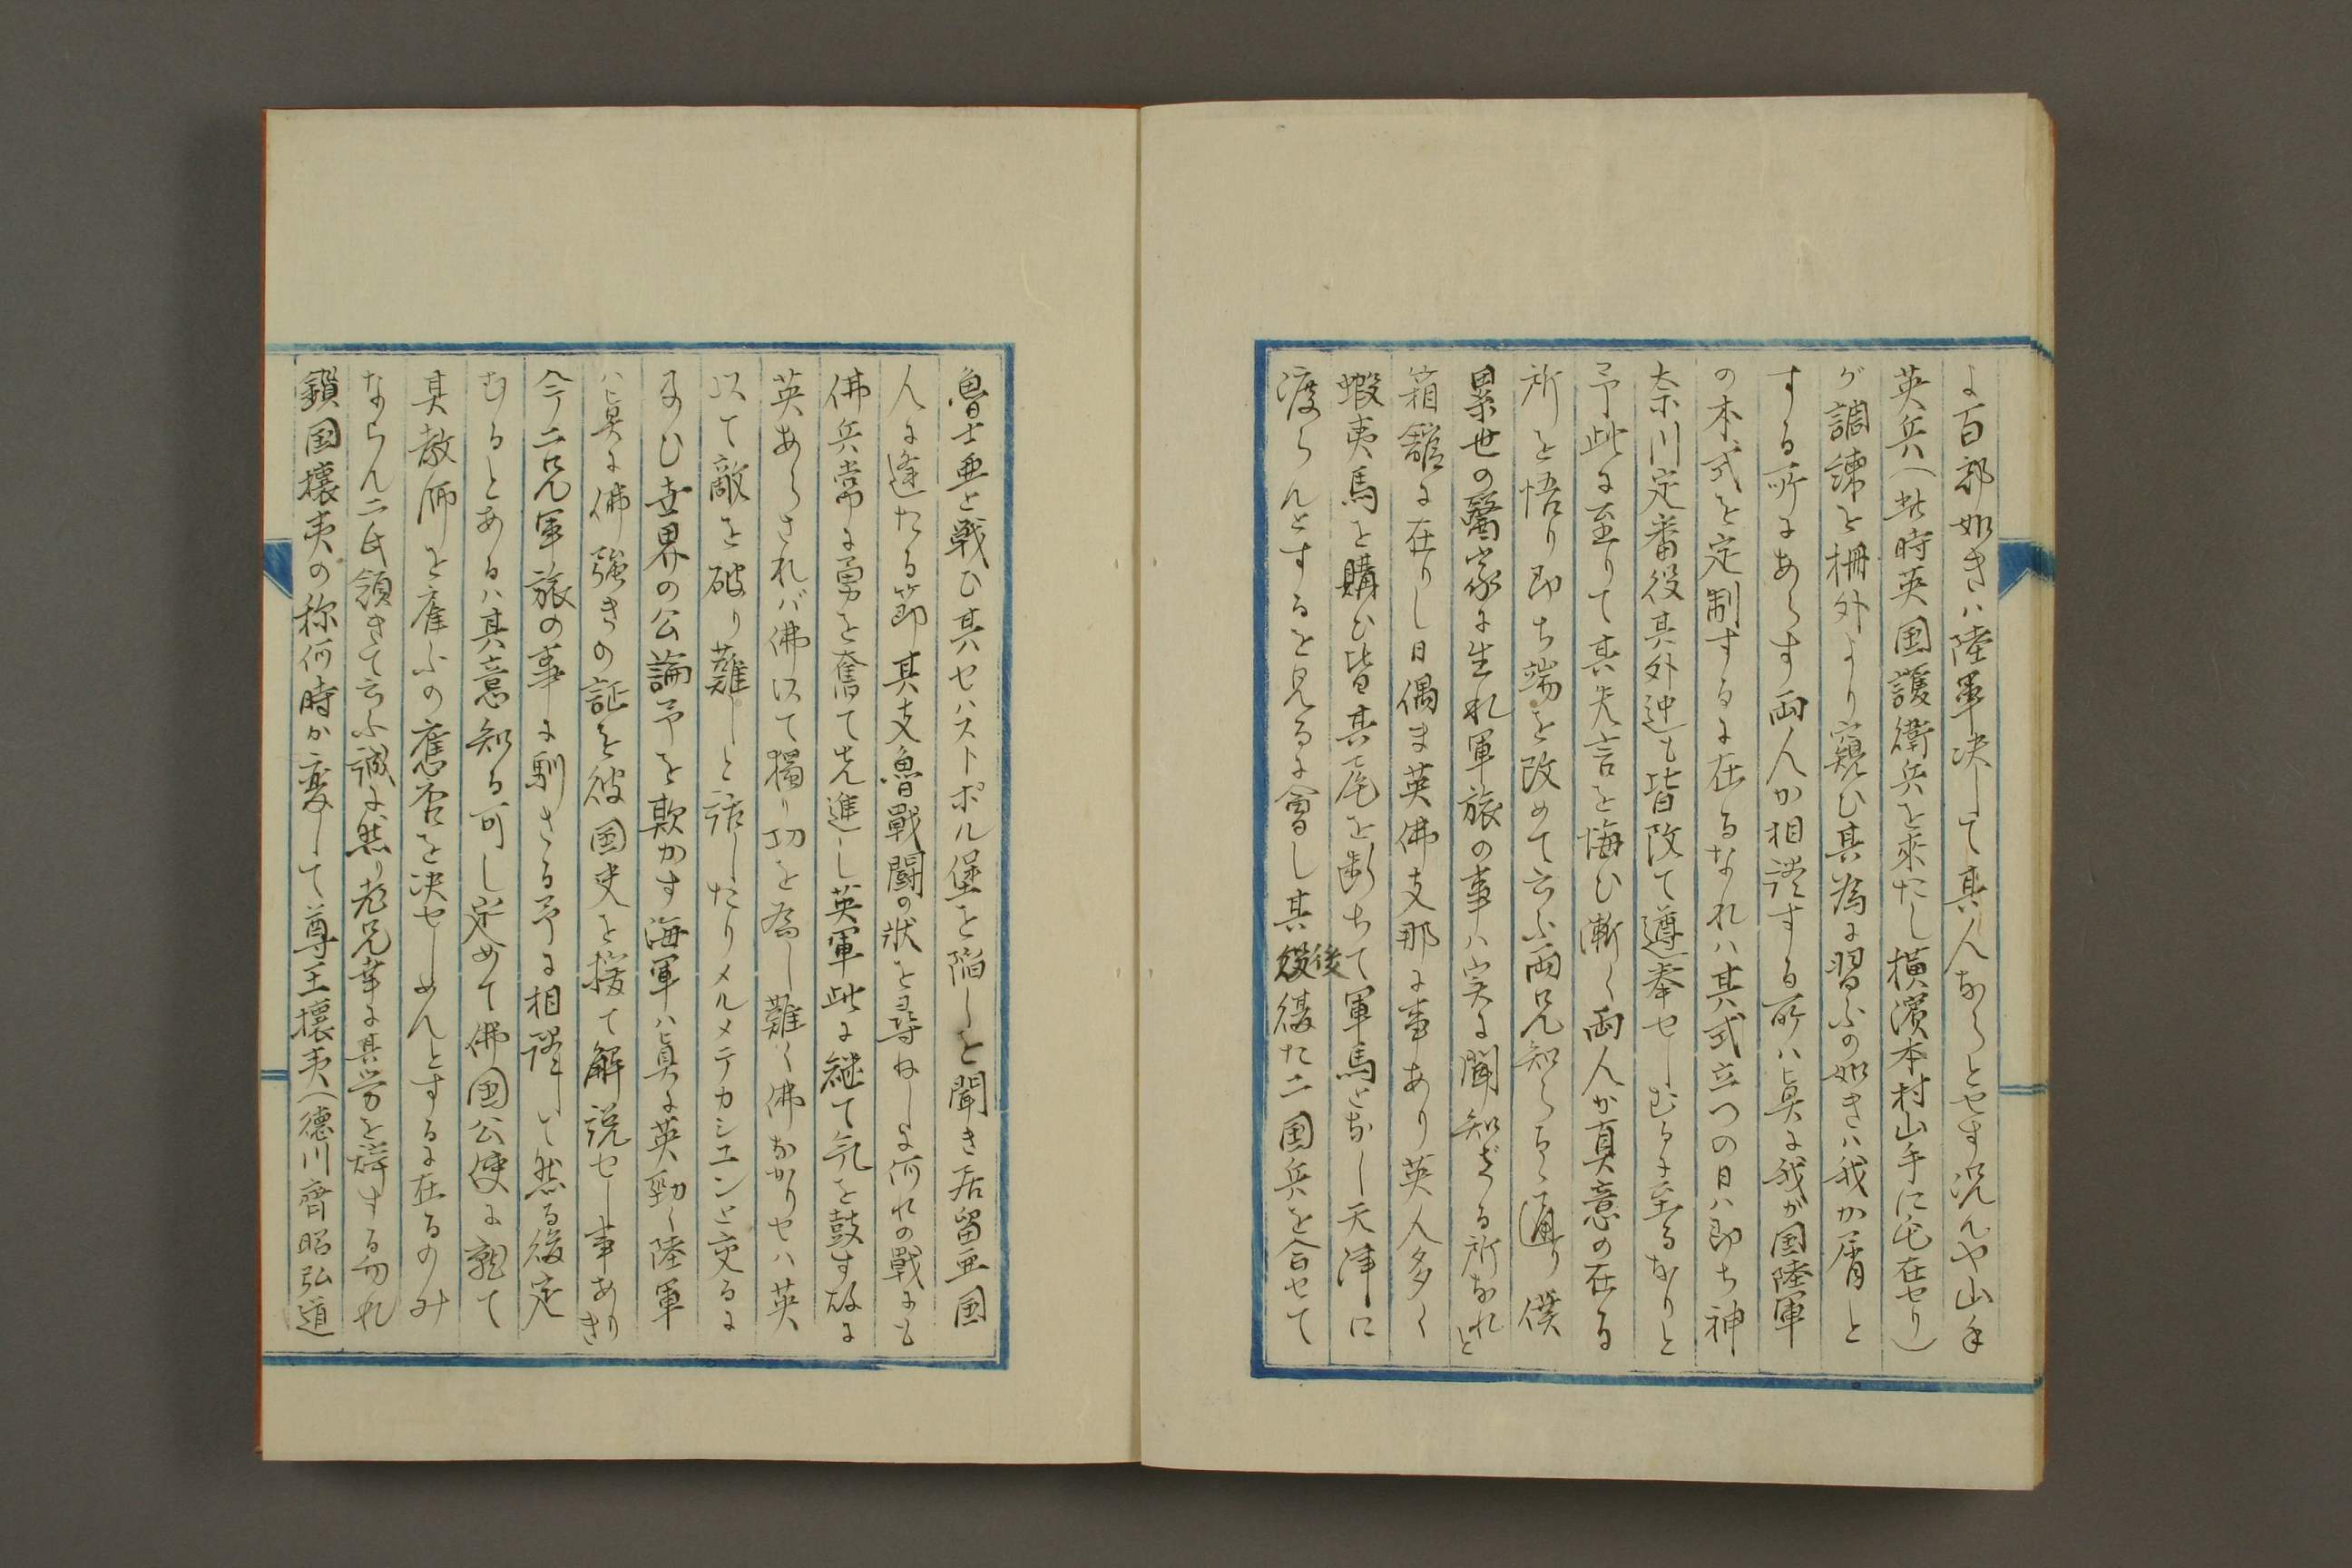 よ百部如きハ陸軍決して其人ならとせす況んや山手
英兵(此時英国護衛兵を来たし横濱本村山手に屯在せり)
が調練を柵外より窺ひ其為に習ふの如きハ我か屑と
する所にあらす両人か相談する所ハ真に我が国陸軍
の本式を定制するに在るなれハ其式立つの日ハ即ち神
奈川定番役其外迚も皆改て遵奉せしむるに至るなりと
予此に至りて其失言を悔ひ漸く両人か真意の在る
所を悟り即ち端を改めて云ふ両兄知らるゝ通り僕
累世の醫家に生れ軍旅の事ハ実に聞知ざる所なれと
箱舘に在りし日偶ま英佛支那に事あり英人多く
蝦夷馬を購ひ皆其尾を断ちて軍馬となし天津に
渡らんとするを見るに會し其後復た二国兵を合せて
魯士亜と戦ひ其セハストポル堡を陥しと聞き居留亜国
人に逢たる節其支魯戰闘の状を尋ねしに何れの戰にも
佛兵常に勇を奮て先進し英軍此に継て気を鼓す故に
英あらされバ佛以て獨り功を為し難く佛なかりせハ英
以て敵を破り難しと話したりメルメテカシユンと交るに
及ひ世界の公論予を欺かす海軍ハ真に英勁く陸軍
ハ真に佛強きの証を彼国史を援て解説せし事ありき
今二兄軍旅の事に馴さる予に相謀して然る後定
むるとあるハ其意知る可し定めて佛国公使に就て
其教師を雇ふの應否を決せしめんとするに在るのみ
ならん二氏頷きて云ふ誠に然り老兄幸に其労を辞する勿れ
鎖国攘夷の称何時か変して尊王攘夷(徳川齊昭弘道